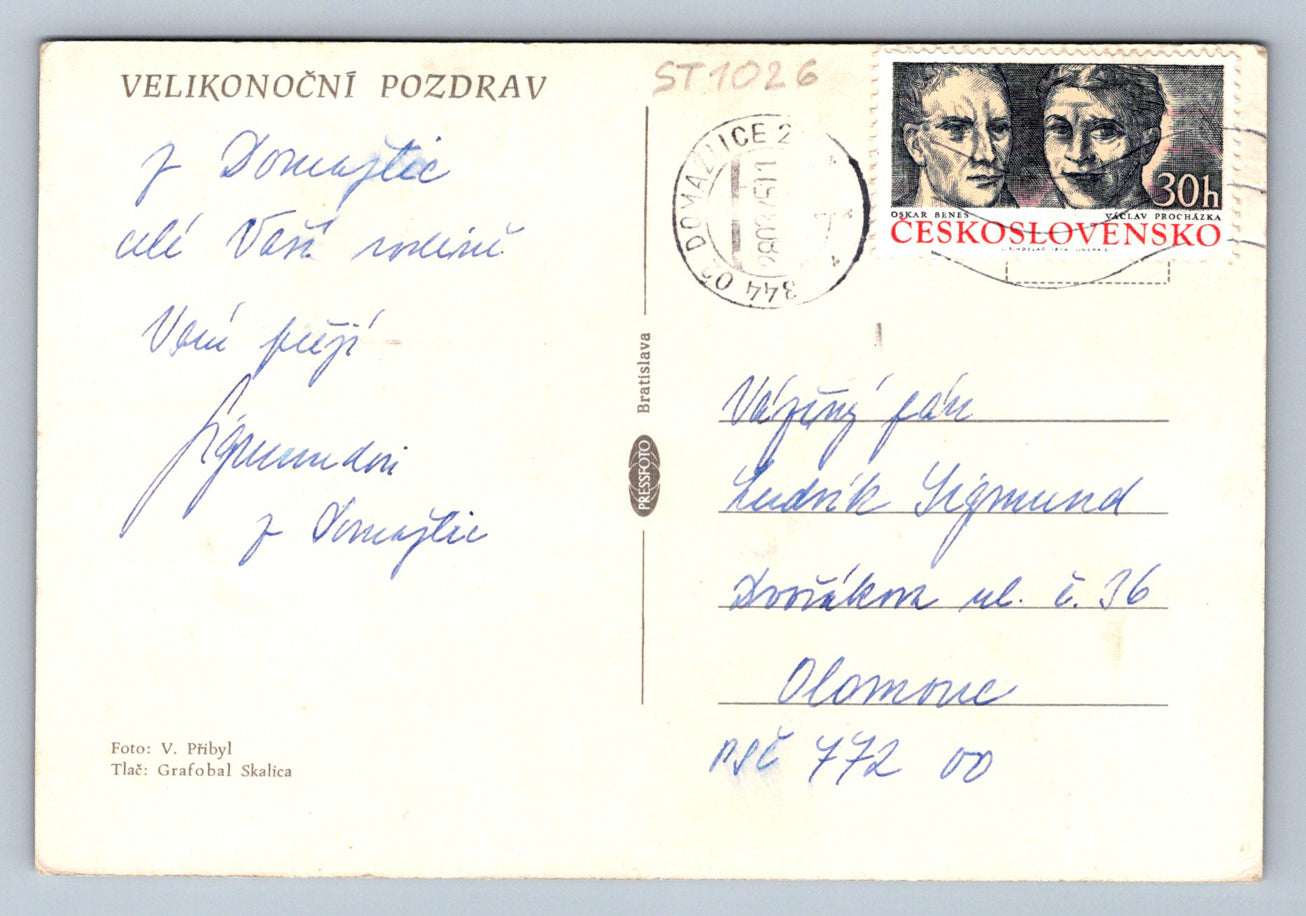 VELIKONOČNÍ POZDRAV
z Domažlic
celé Vaší rodině
Vám přejí
Sigmundovi
z Domažlic
Foto: V. Přibyl
Tlač: Grafobal Skalica
PRESSFOTO Bratislava
ST1026
344 02 DOMAŽLICE 2
28.03.75-11
30h
OSKAR BENEŠ
VÁCLAV PROCHÁZKA
ČESKOSLOVENSKO
Vážený pán
Ludvík Sigmund
Dvořákova ul. č. 36
Olomouc
PSČ 772 00